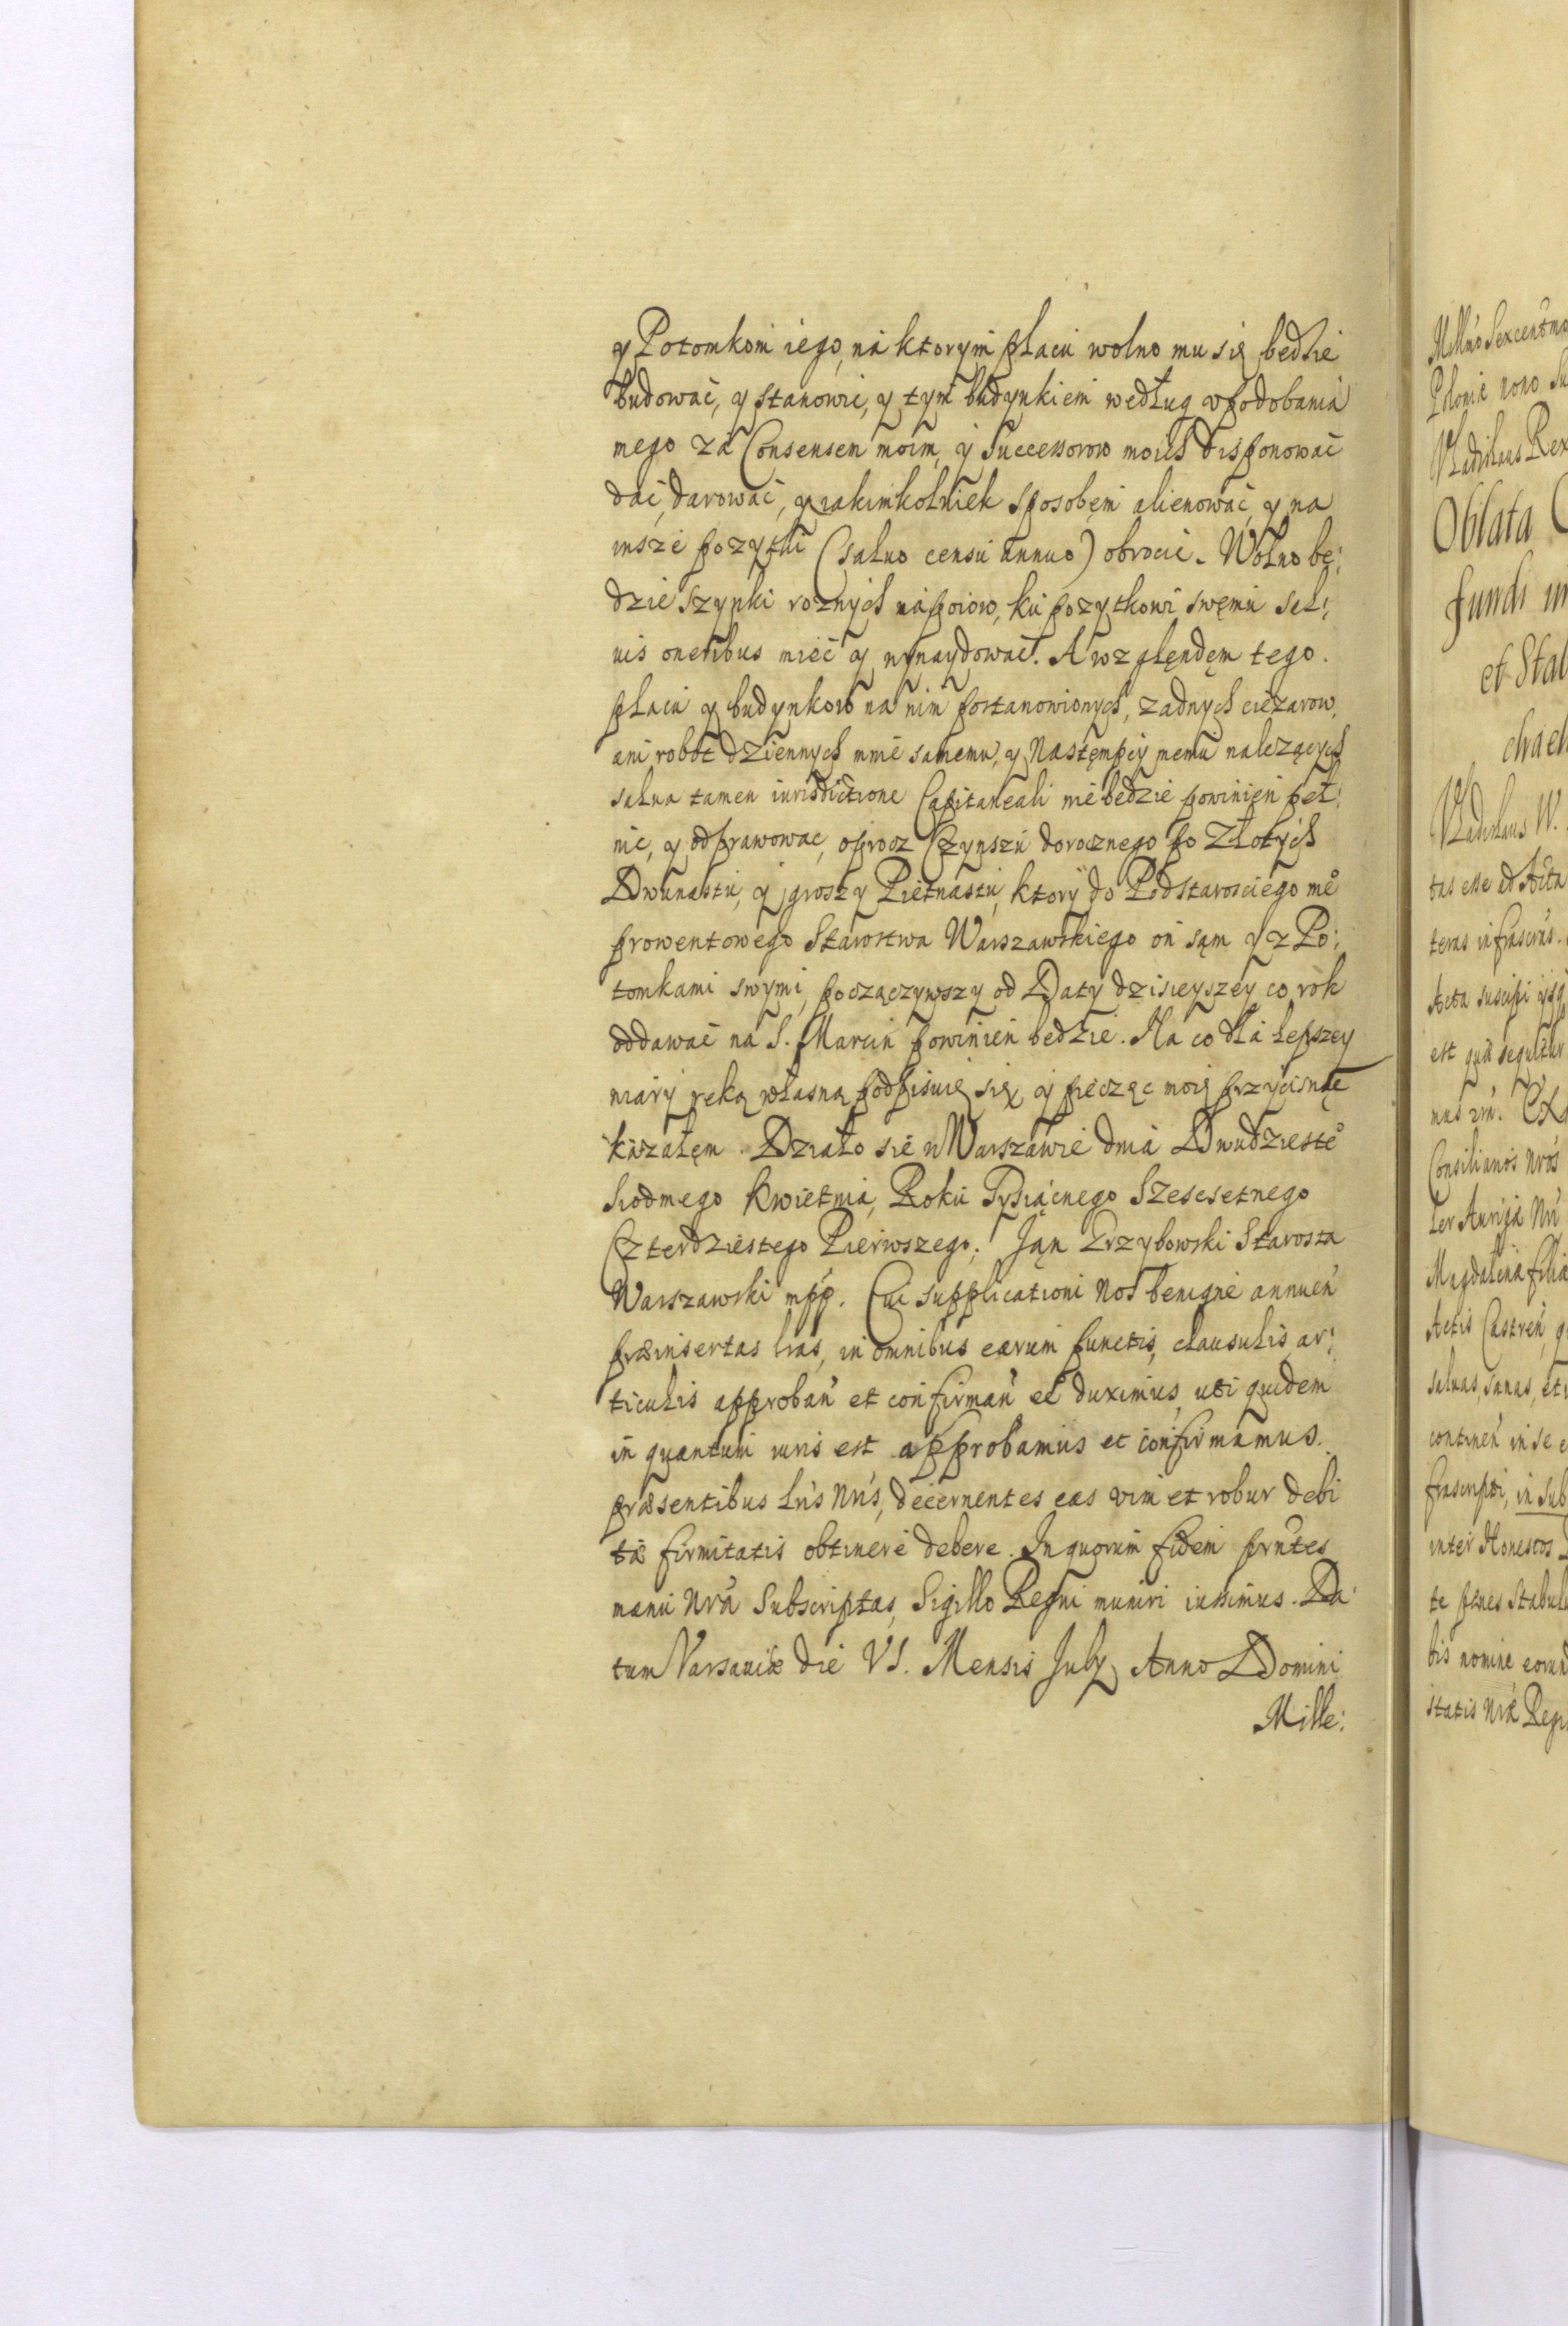 y Potomkom iego, na ktorym placu wolno mu się bedzie
budowac, y stanowic, y tym budynkiem według vpodobania
mego za Consensem moim, y Successorow moich disponować
dać, darować, y iakimkolwiek sposobęm alienować, y na
insze pozytki (saluo censu annuo) obrocic. Wolno bę:
dzie szynki roznych napoiow, ku pozytkowi swęmu sal:
uis oneribus mieć y wynaydować. A względęm tego
placu y budynkow na nim postanowionych, zadnych ciezarow,
ani robot dziennych mnie samemu, y Nastęmpcy memu nalezących
salua tamen iurisdictione Capitaneali nie bedzie powinięn peł:
nic, y odprawowac, oprocz Czynszu dorocznego po Złotych
Dwunastu, y groszy Pietnastu, ktory do Podstarosciego me
prowentowego Starostwa Warszawskiego on sąm y z Po:
tomkami swymi, począczywszy od Daty dzisieyszey co rok
oddawać na S. Marcin powinien bedzie. Na co dla lepszey
wiary ręką własną podpisuię się y pieczęc moię przycisnąc
kazałęm. Działo sie w Warszawie dnia Dwudzieste
siodmego Kwietnia, Roku Tysiącnego Szescsetnego
Czterdziestego Pierwszego. Jąn Grzybowski Starosta
Warszawski mpp. Cui supplicationi Nos benigne annuen
præinsertas lras, in omnibus earum punctis, clausulis ar:
ticulis approban et confirman ee duximus, uti quidem
in quantum iuris est approbamus et confirmamus.
præsentibus lris Nris, decernentes eas vim et robur debi
tæ firmitatis obtinere debere. In quorum fidem prntes
manu Nra Subscriptas, Sigillo Regni muniri iussimus. Da:
tum Varsauiæ die VI. Mensis July Anno Domini
Mille:
Polonie
Vladislaus Rex
Oblata
fundi in
et Stab
Vladislaus
tas esse ad Acta
teras infrascrip.
Acta suscipi
est
Consiliarios Nros
Magdalena filia
Actis Castren
saluas, sanas, et
continen in se
frascripti, in sub
inter Honestos
te penes Stabul
bis nomine eorund
statis Nræ Regi